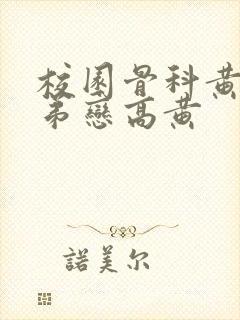 校園骨科黃
弟戀高黄
諾美尔